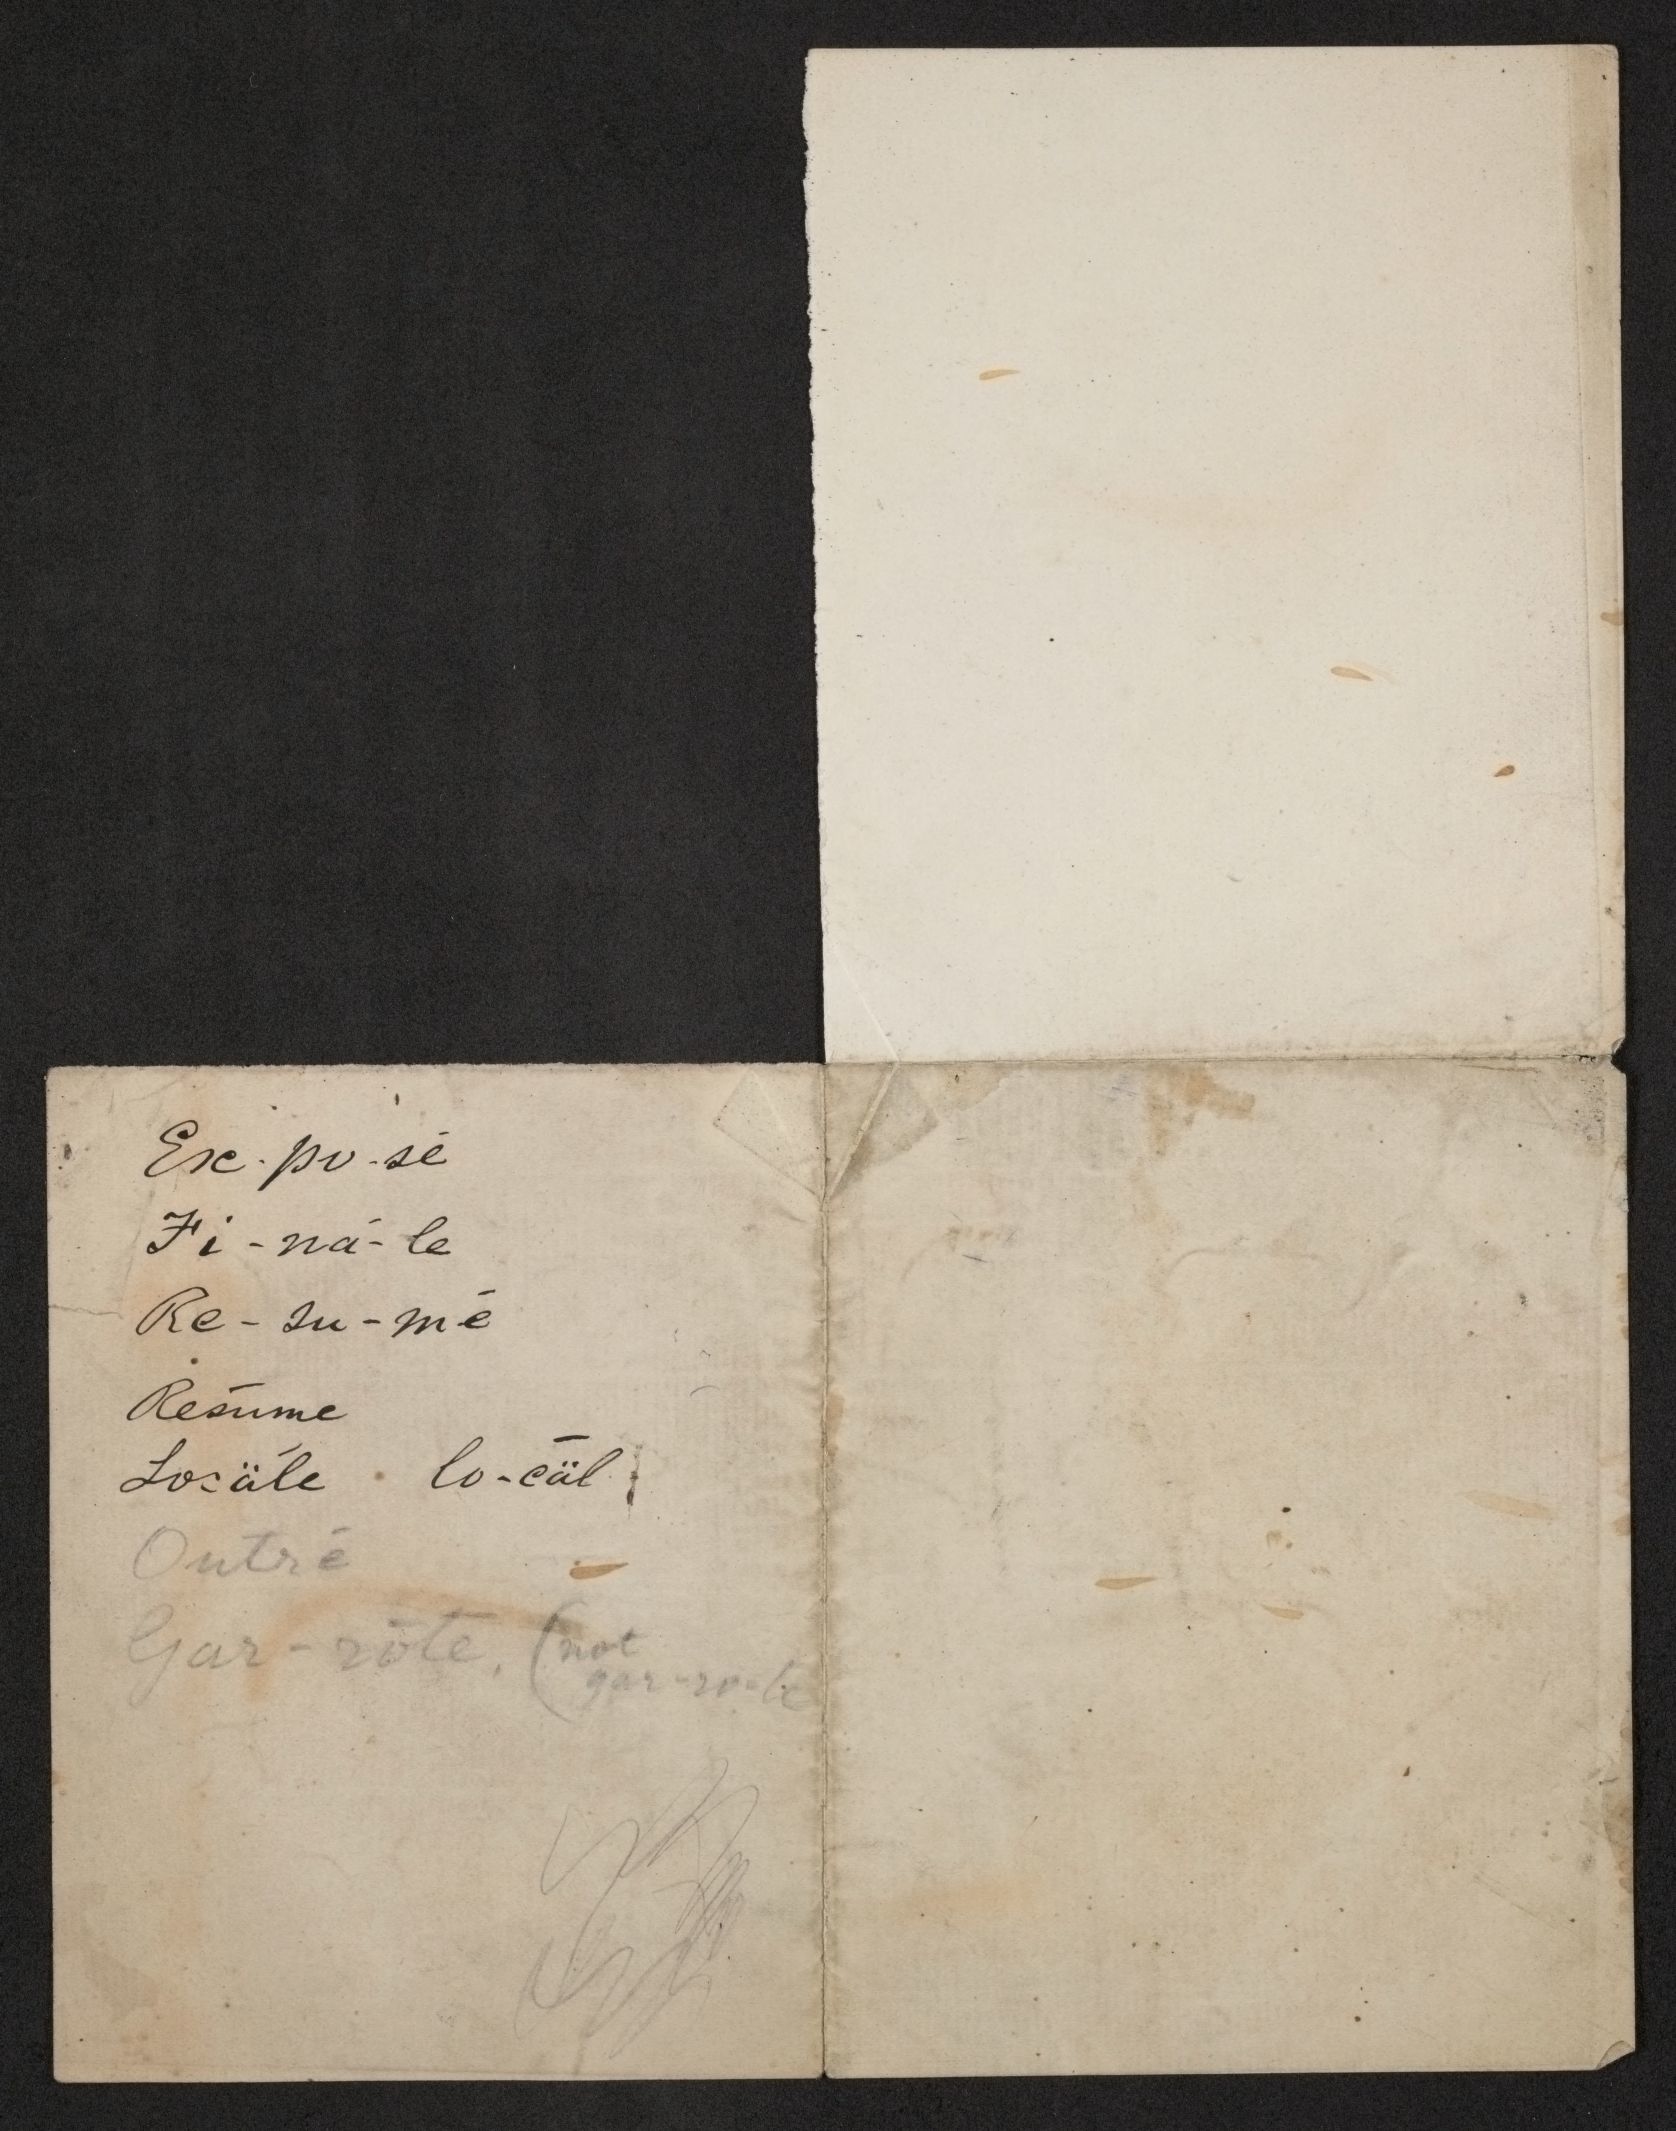 Ex-po-sé
Fi-ná-le
Re-su-mé
Resūme
Locäle lo-cäl
Outré
Gar-rōte, (not
gar-ro-te